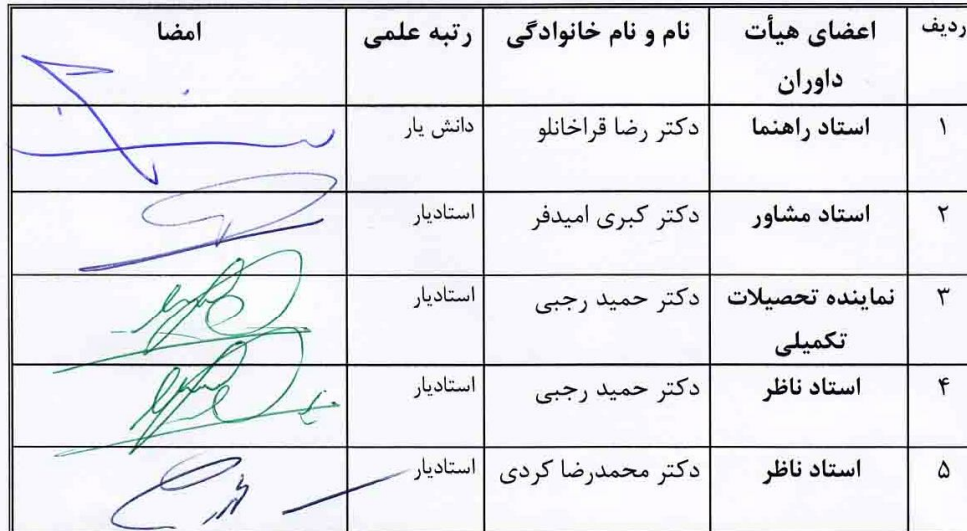 ردیف اعضای هیأت داوران نام و نام خانوادگی رتبه علمی امضا
۱ استاد راهنما دکتر رضا قراخانلو دانش یار
۲ استاد مشاور دکتر کبری امیدفر استادیار
۳ نماینده تحصیلات تکمیلی دکتر حمید رجبی استادیار
۴ استاد ناظر دکتر حمید رجبی استادیار
۵ استاد ناظر دکتر محمدرضا کردی استادیار